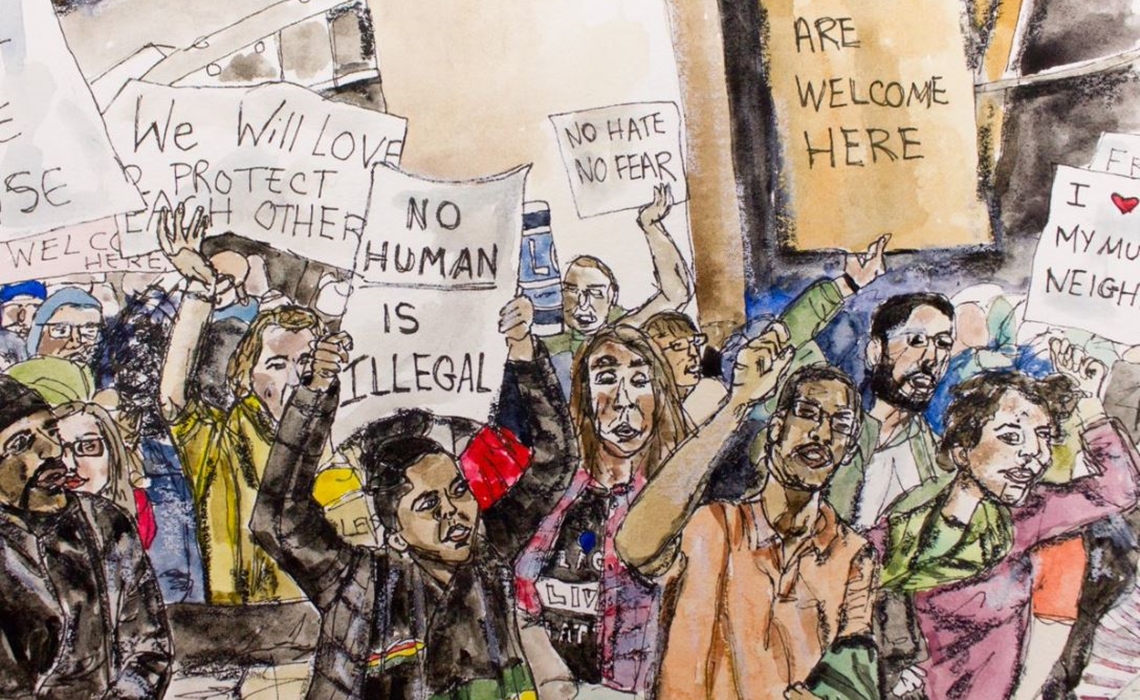 We Will LOVE
& PROTECT
EACH OTHER
WELCO
HERE
NO
HUMAN
IS
ILLEGAL
NO HATE
NO FEAR
ARE
WELCOME
HERE
I ♥
MY MU
NEIGH
LIV